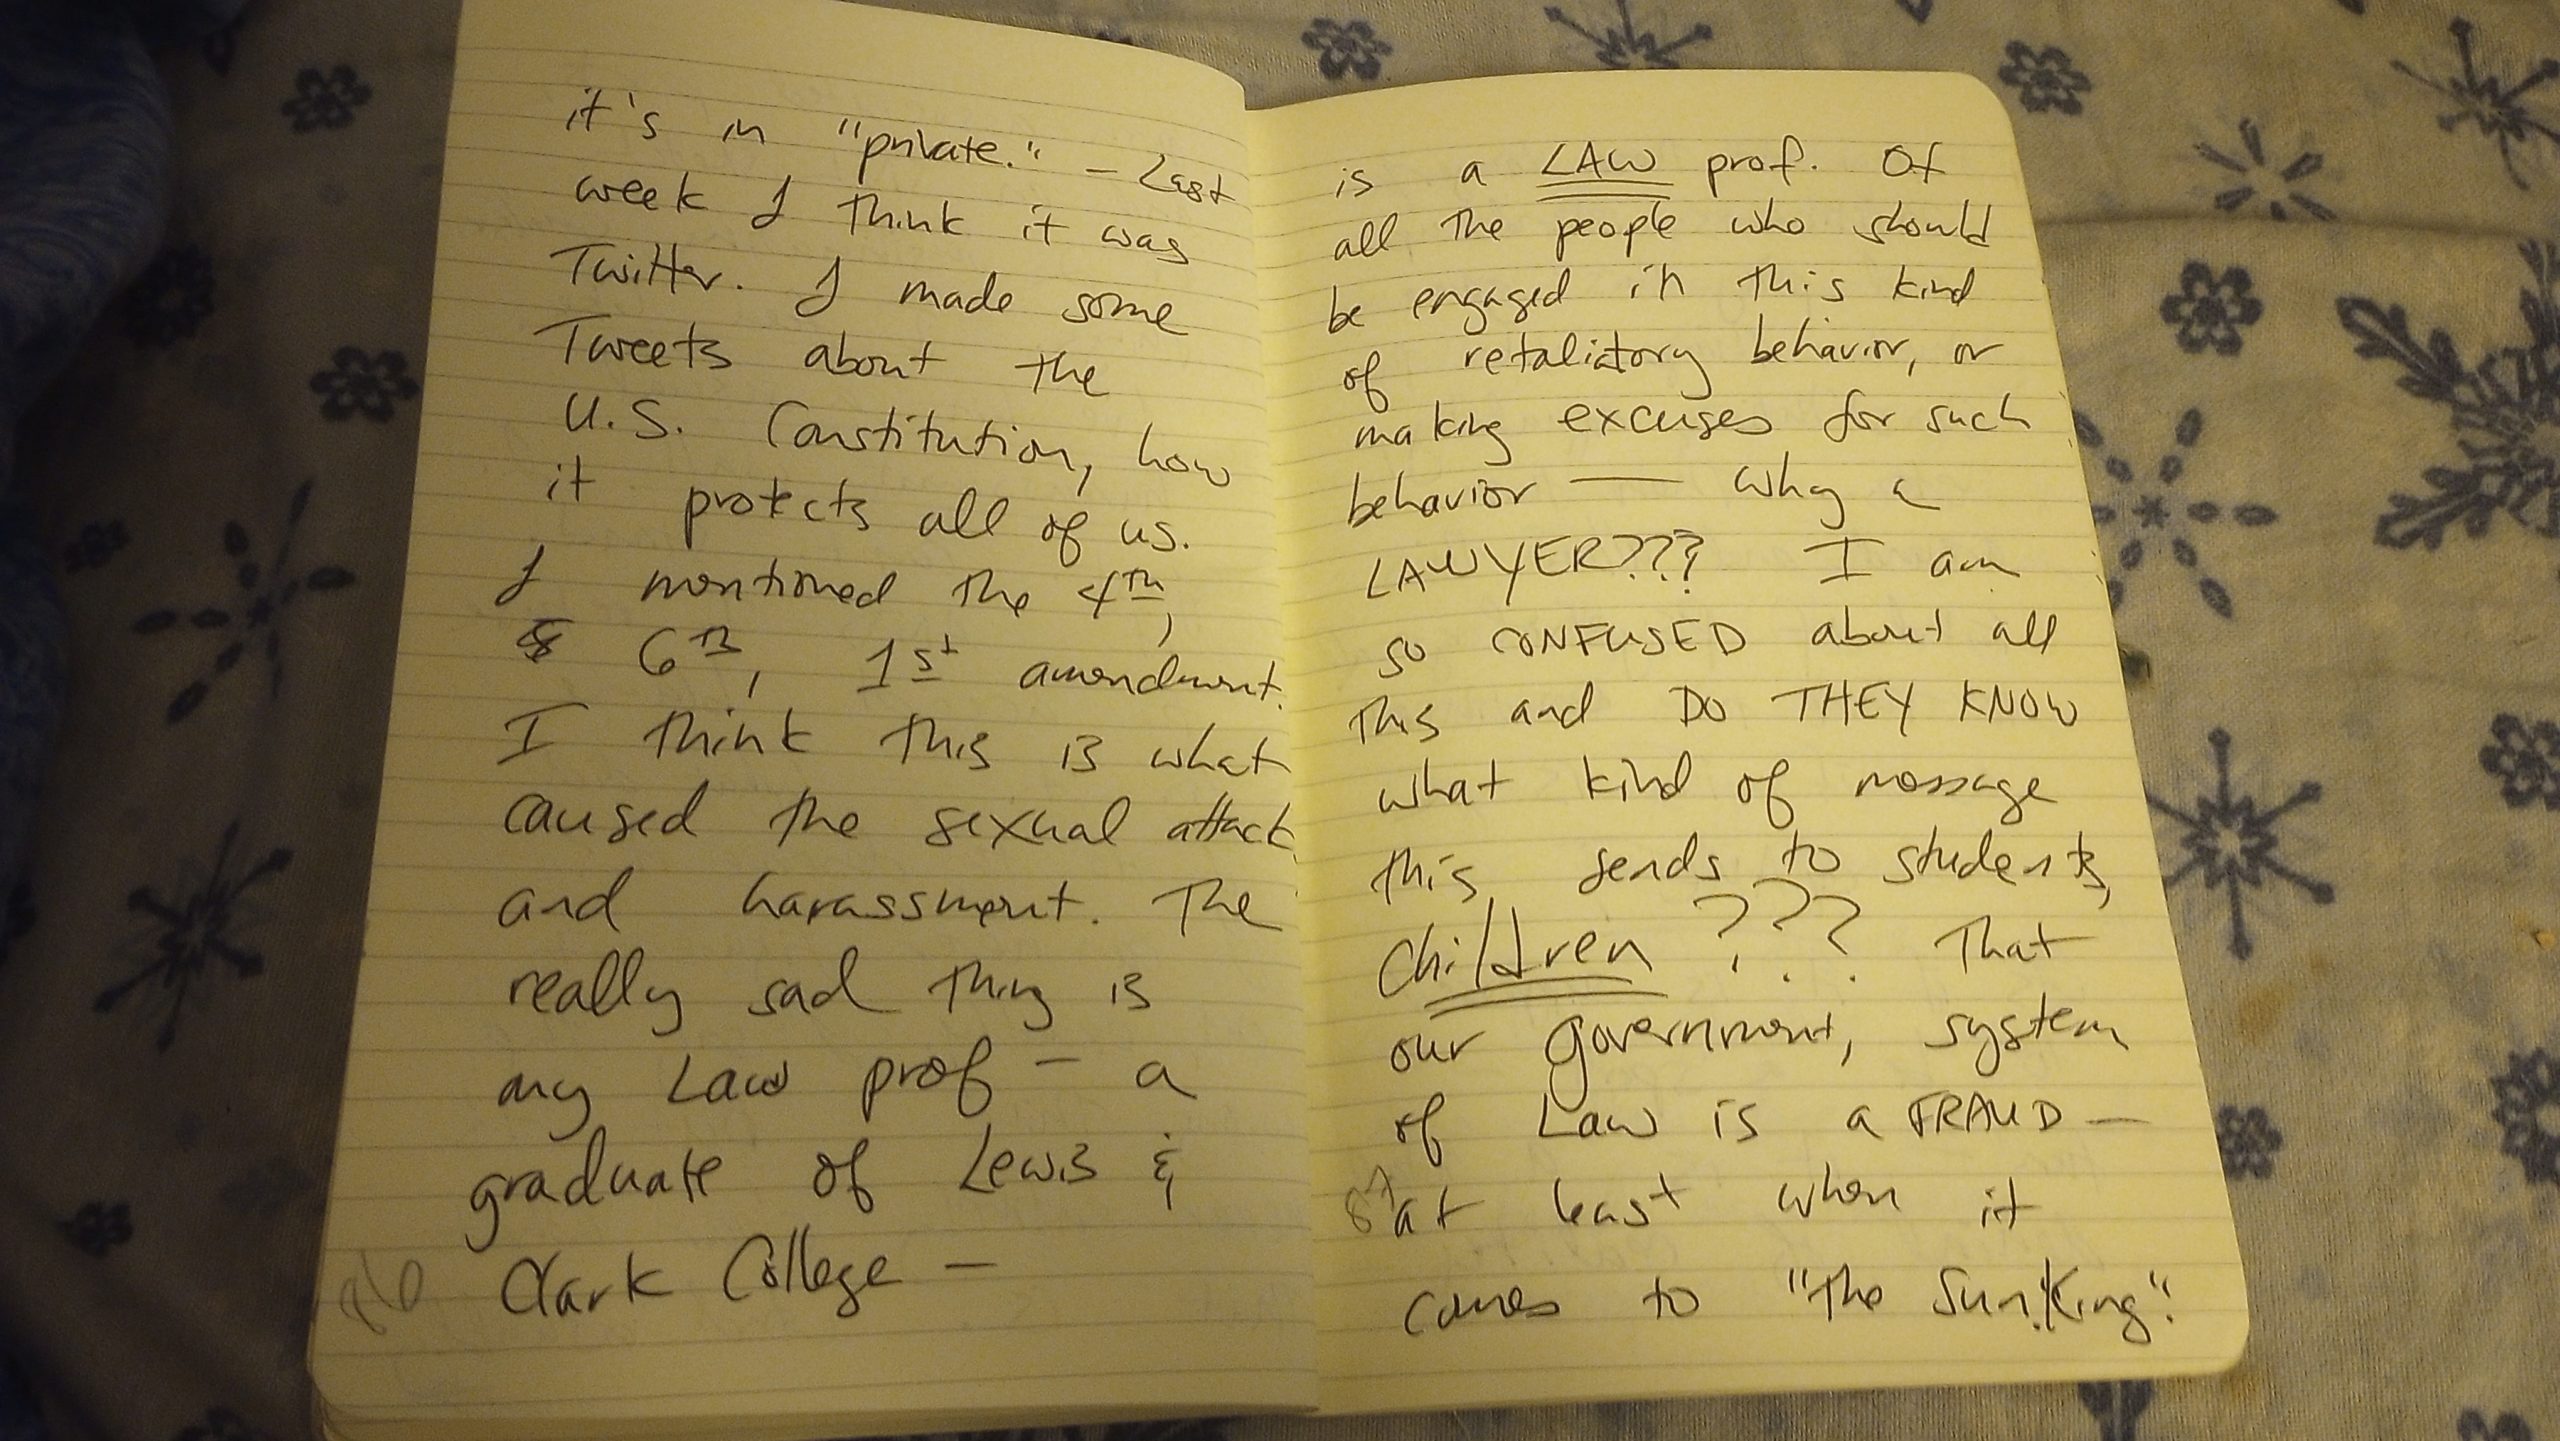 it's in "private." – Last
week I think it was
Twitter. I made some
Tweets about the
U.S. Constitution, how
it protects all of us.
I mentioned the 4th,
6th, 1st amendment.
I think this is what
caused the sexual attack
and harassment. The
really sad thing is
my Law prof – a
graduate of Lewis &
Clark College –
86
is a LAW prof. Of
all the people who should
be engaged in this kind
of retaliatory behavior, or
making excuses for such
behavior — why a
LAWYER??? I am
so CONFUSED about all
this and DO THEY KNOW
what kind of message
this sends to students,
children??? That
our government, system
of Law is a FRAUD —
at least when it
comes to "the Sun King".
87